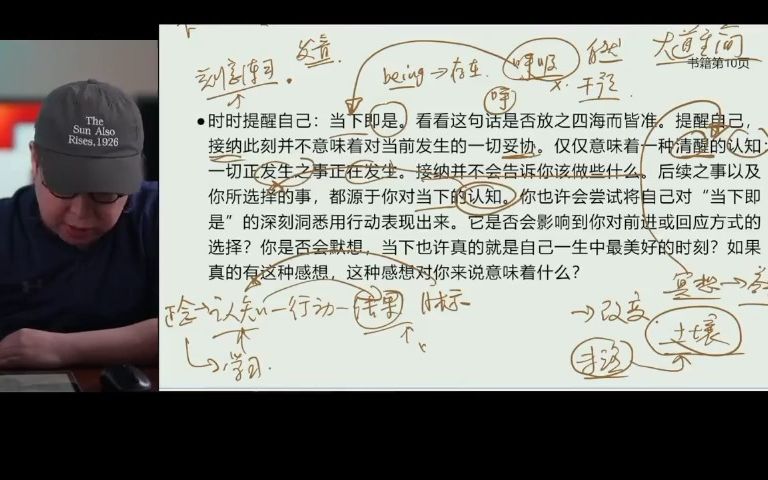 The
Sun Also
Rises, 1926
发言
being→存在
呼吸
自然
大道至简
书籍第10页
刻意练习
呼
干预
•时时提醒自己：当下即是。看看这句话是否放之四海而皆准。提醒自己，
接纳此刻并不意味着对当前发生的一切妥协。仅仅意味着一种清醒的认知：
一切正发生之事正在发生。接纳并不会告诉你该做些什么。后续之事以及
你所选择的事，都源于你对当下的认知。你也许会尝试将自己对“当下即
是”的深刻洞悉用行动表现出来。它是否会影响到你对前进或回应方式的
选择？你是否会默想，当下也许真的就是自己一生中最美好的时刻？如果
真的有这种感想，这种感想对你来说意味着什么？
冥想→
正念→认知—行动—结果 目标
→改变
土壤
学习